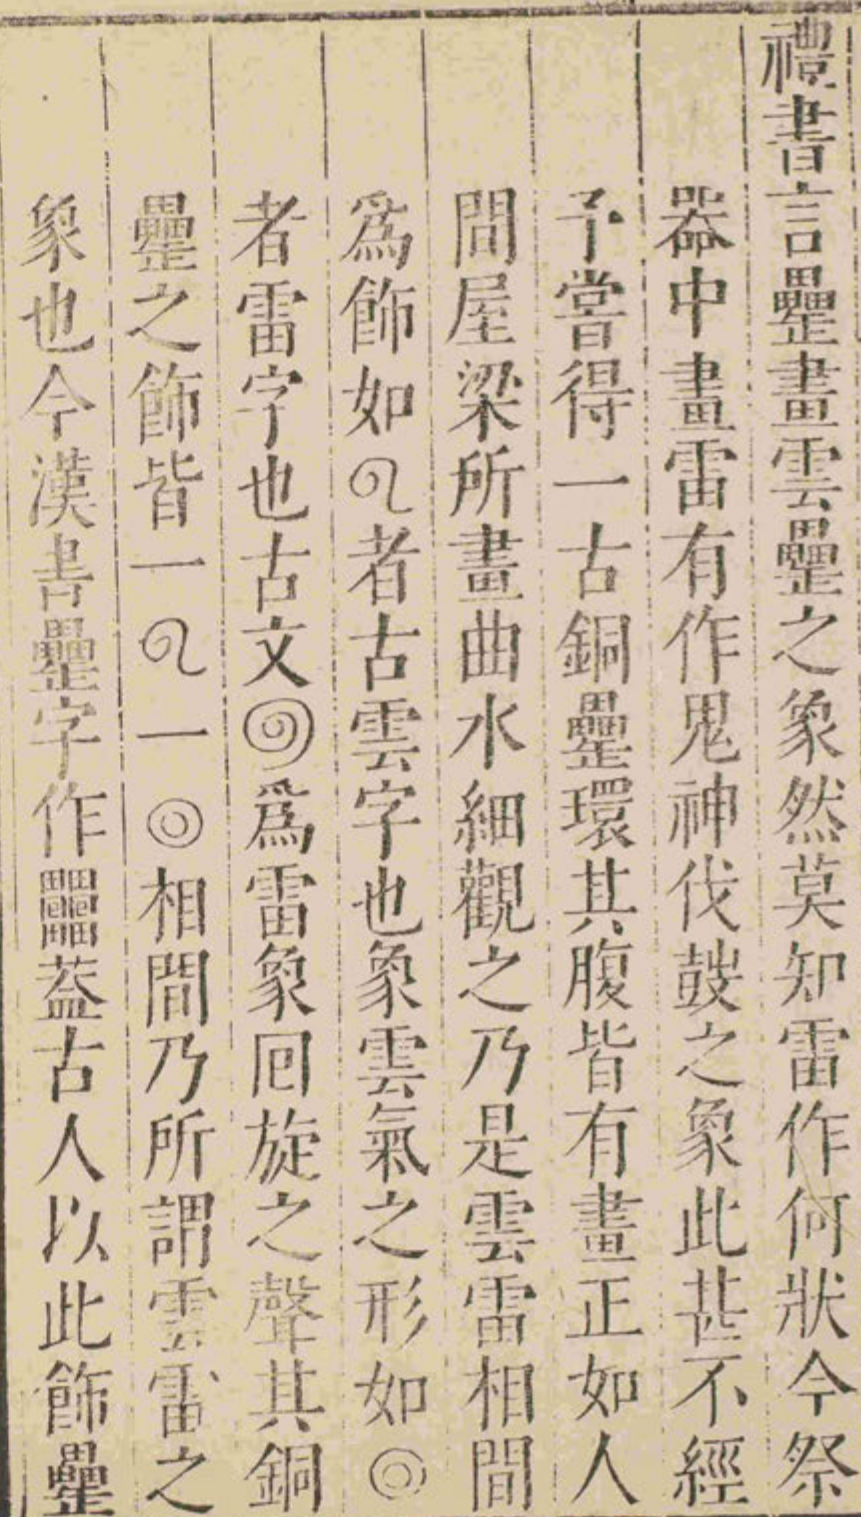 禮書言罍畫雲罍之象然莫知雷作何狀今祭
器中畫雷有作鬼神伐鼓之象此甚不經
予嘗得一古銅罍環其腹皆有畫正如人
間屋梁所畫曲水細觀之乃是雲雷相間
為飾如者古雲字也象雲氣之形如◎
者雷字也古文為雷象囘旋之聲其銅
罍之飾皆一一◎相間乃所謂雲雷之
象也今漢書罍字作蓋古人以此飾罍